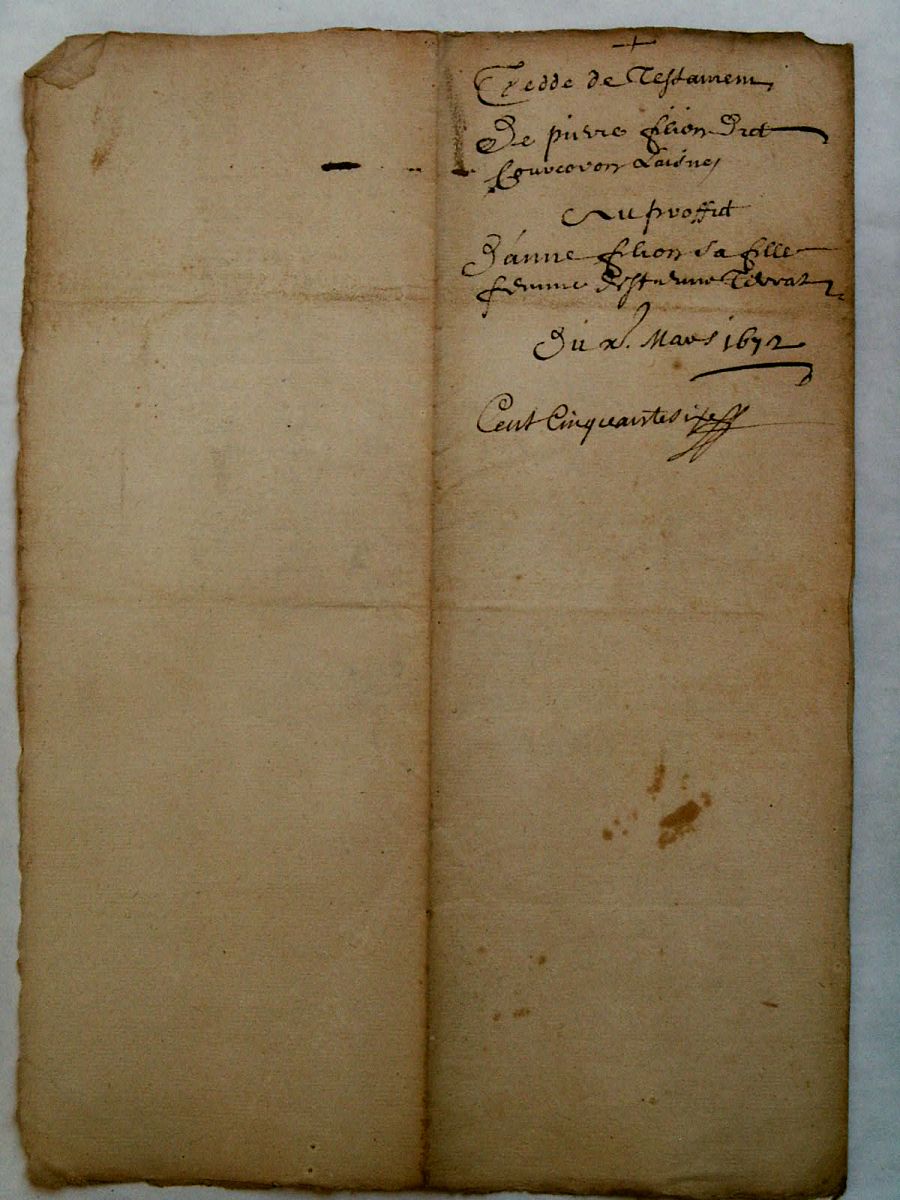 +
Cedde de Testament
De pierre filion Dict
Courcoron Laisne
Au proffict
D'anne filion sa fille
femme d'estienne Terrat
Du x. Mars 1672
Cent Cinquante six